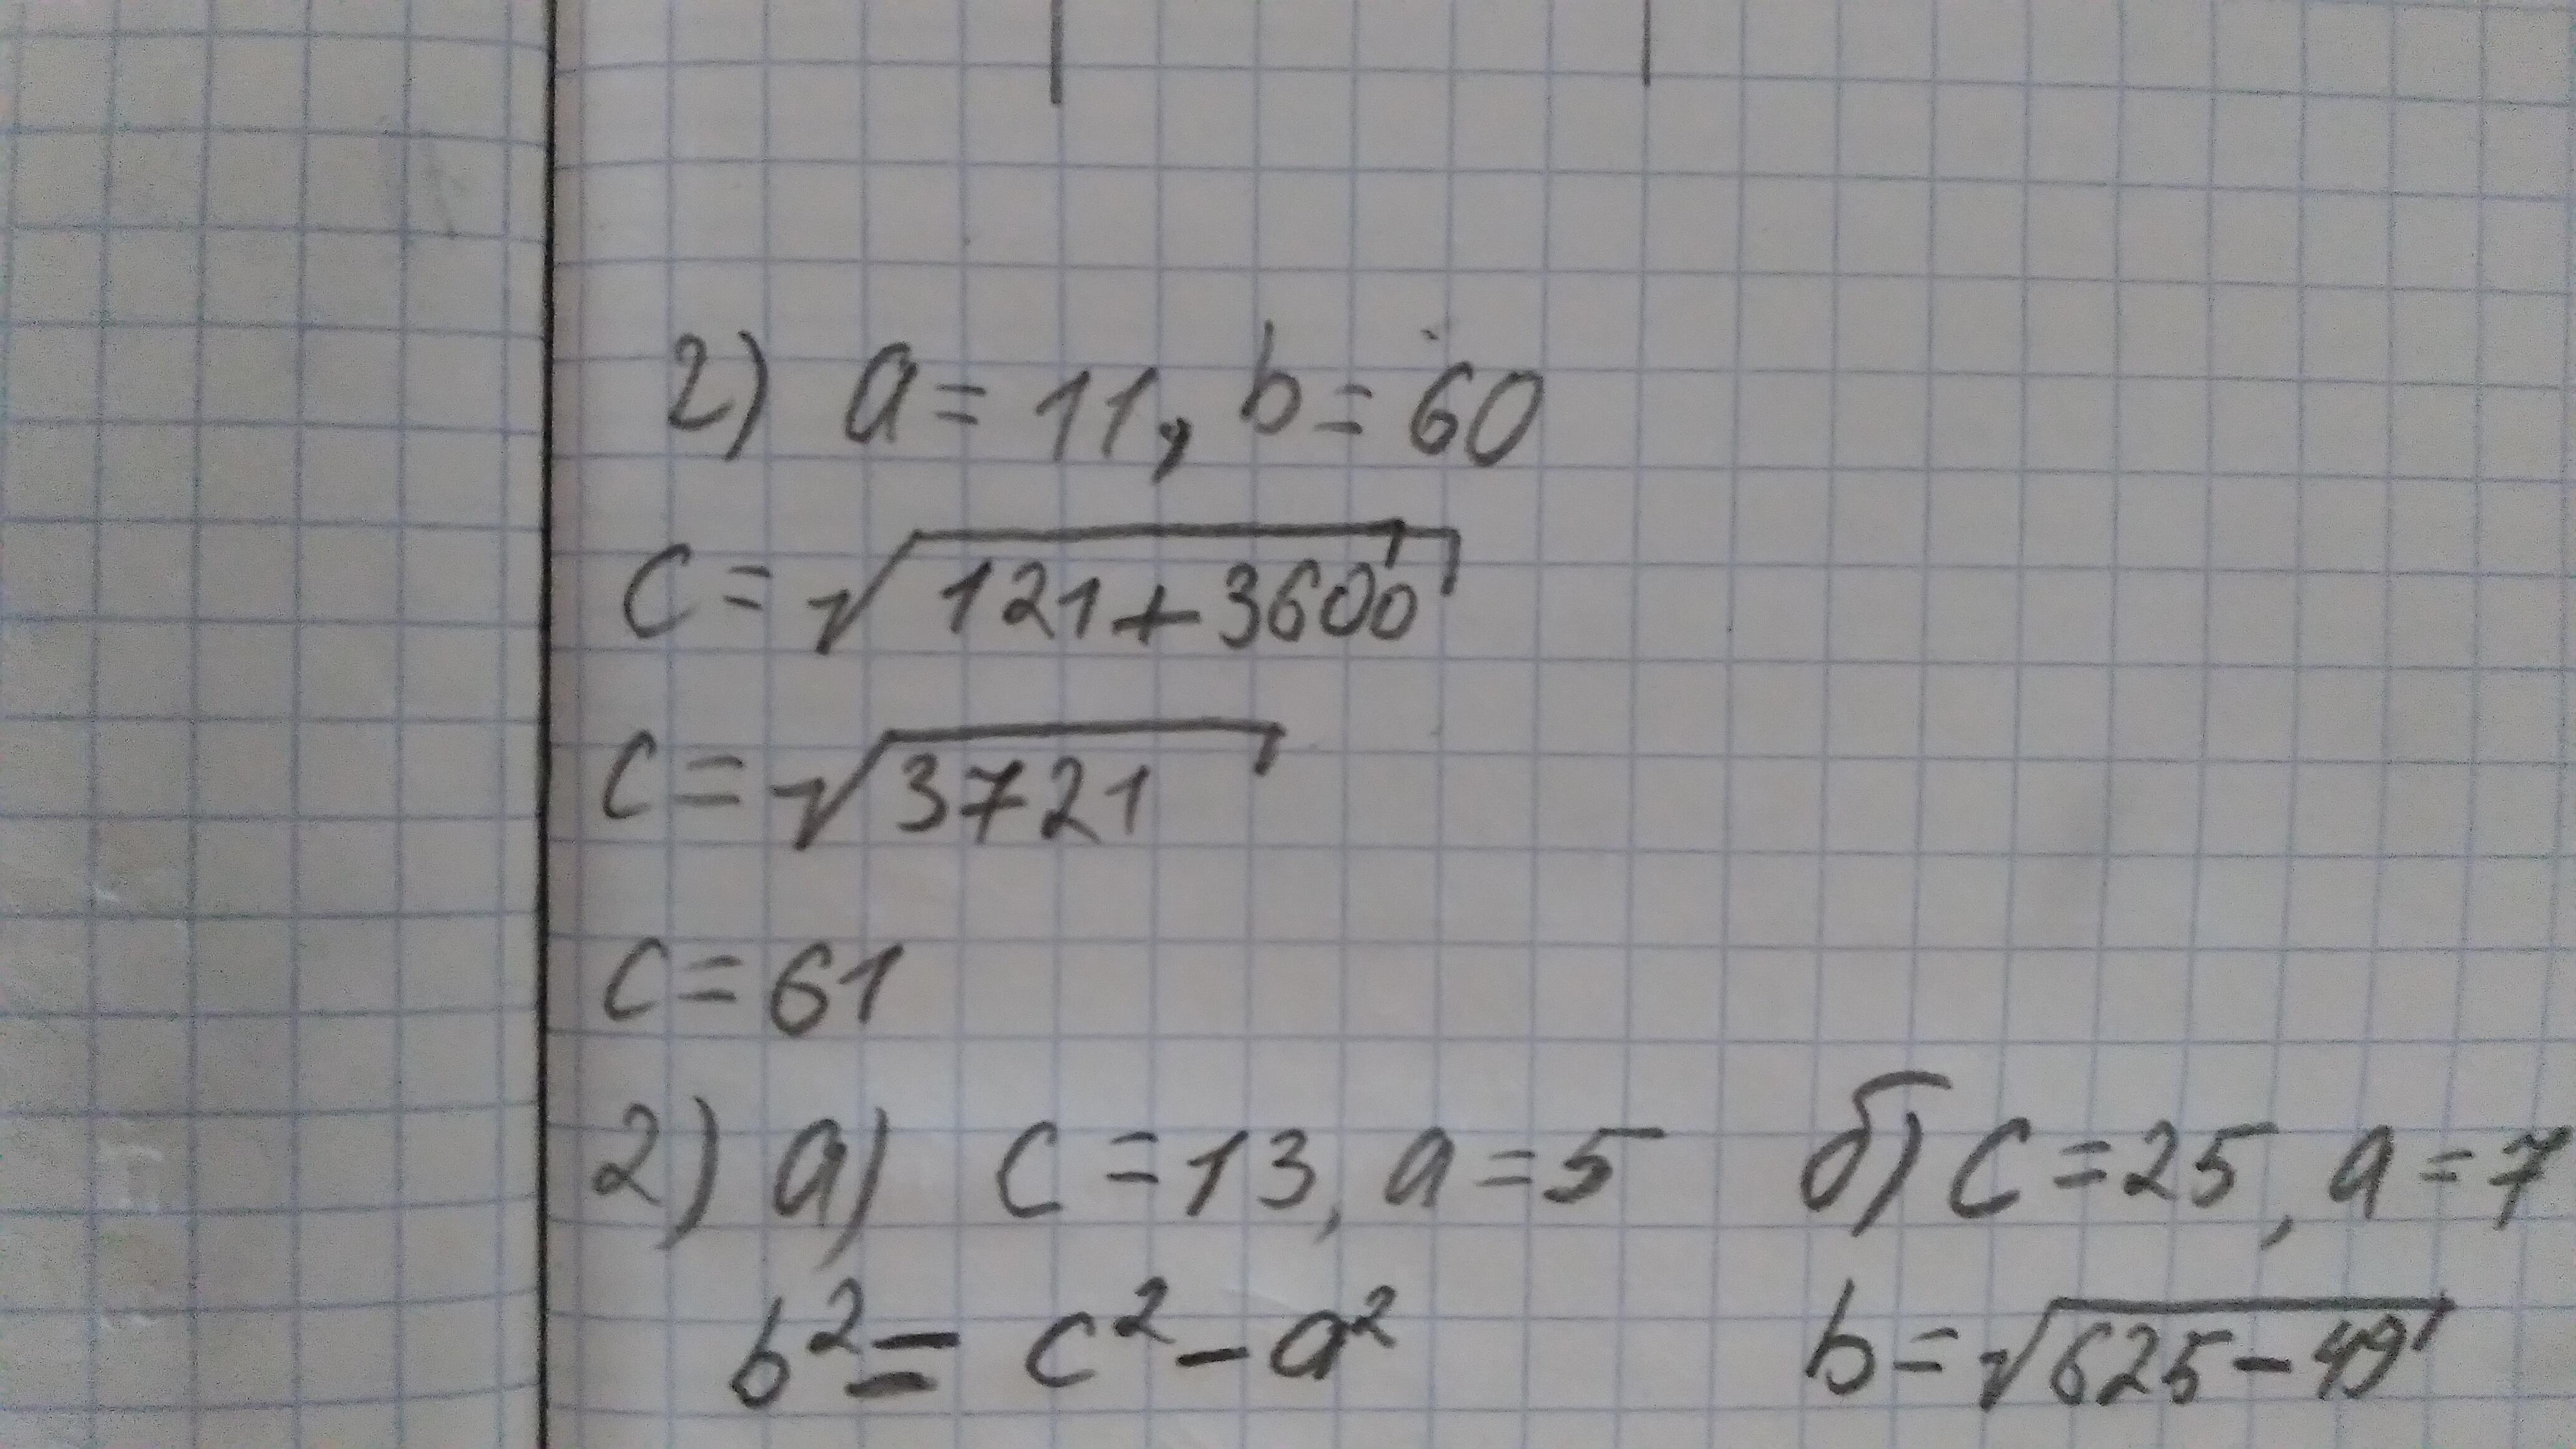 г) a = 11, b = 60
c = √121+3600
c = √3721
c = 61
2) a) c = 13, a = 5
b² = c² - a²
б) c = 25, a = 7
b = √625 - 49